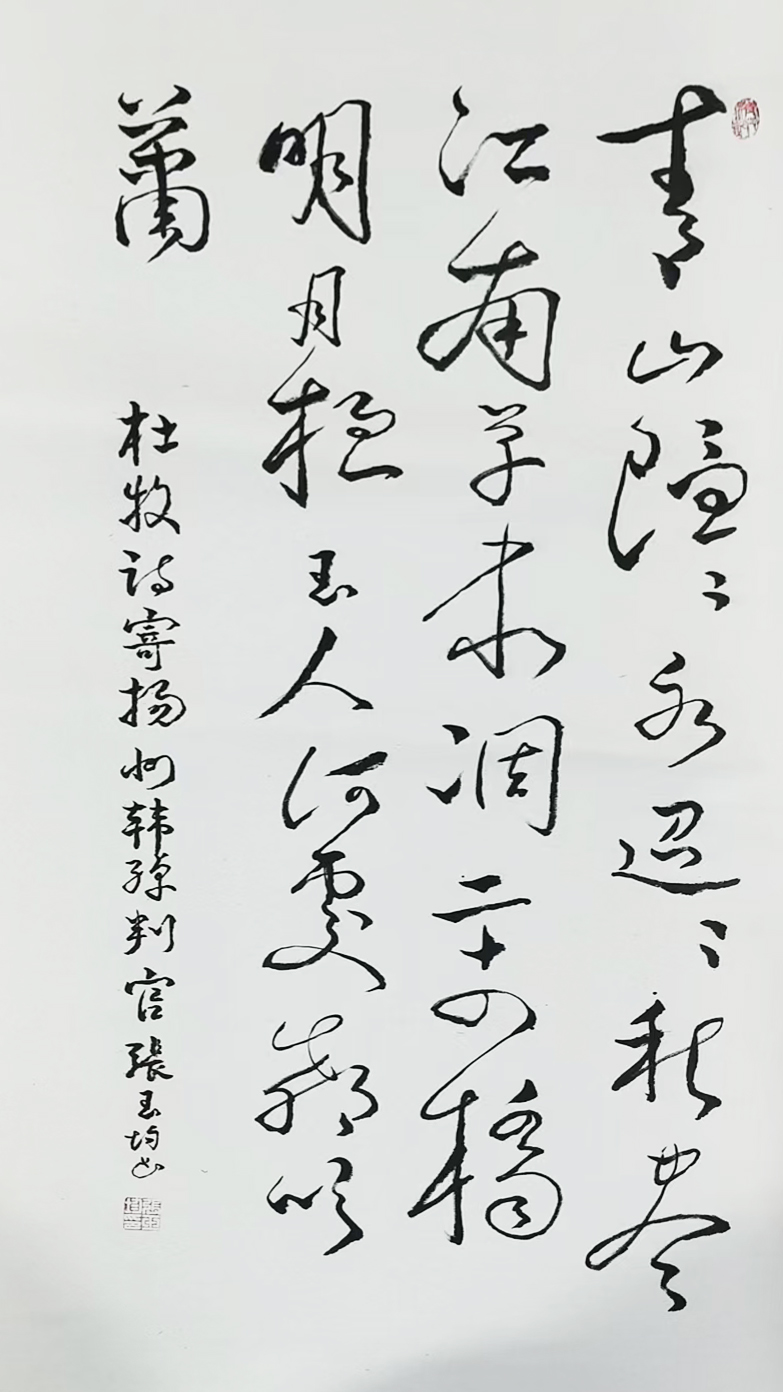 青山隐〻水迢〻秋尽
江南草未凋二十四橋
明月玉人何處教吹
蕭
杜牧诗寄扬州韩绰判官張玉均书